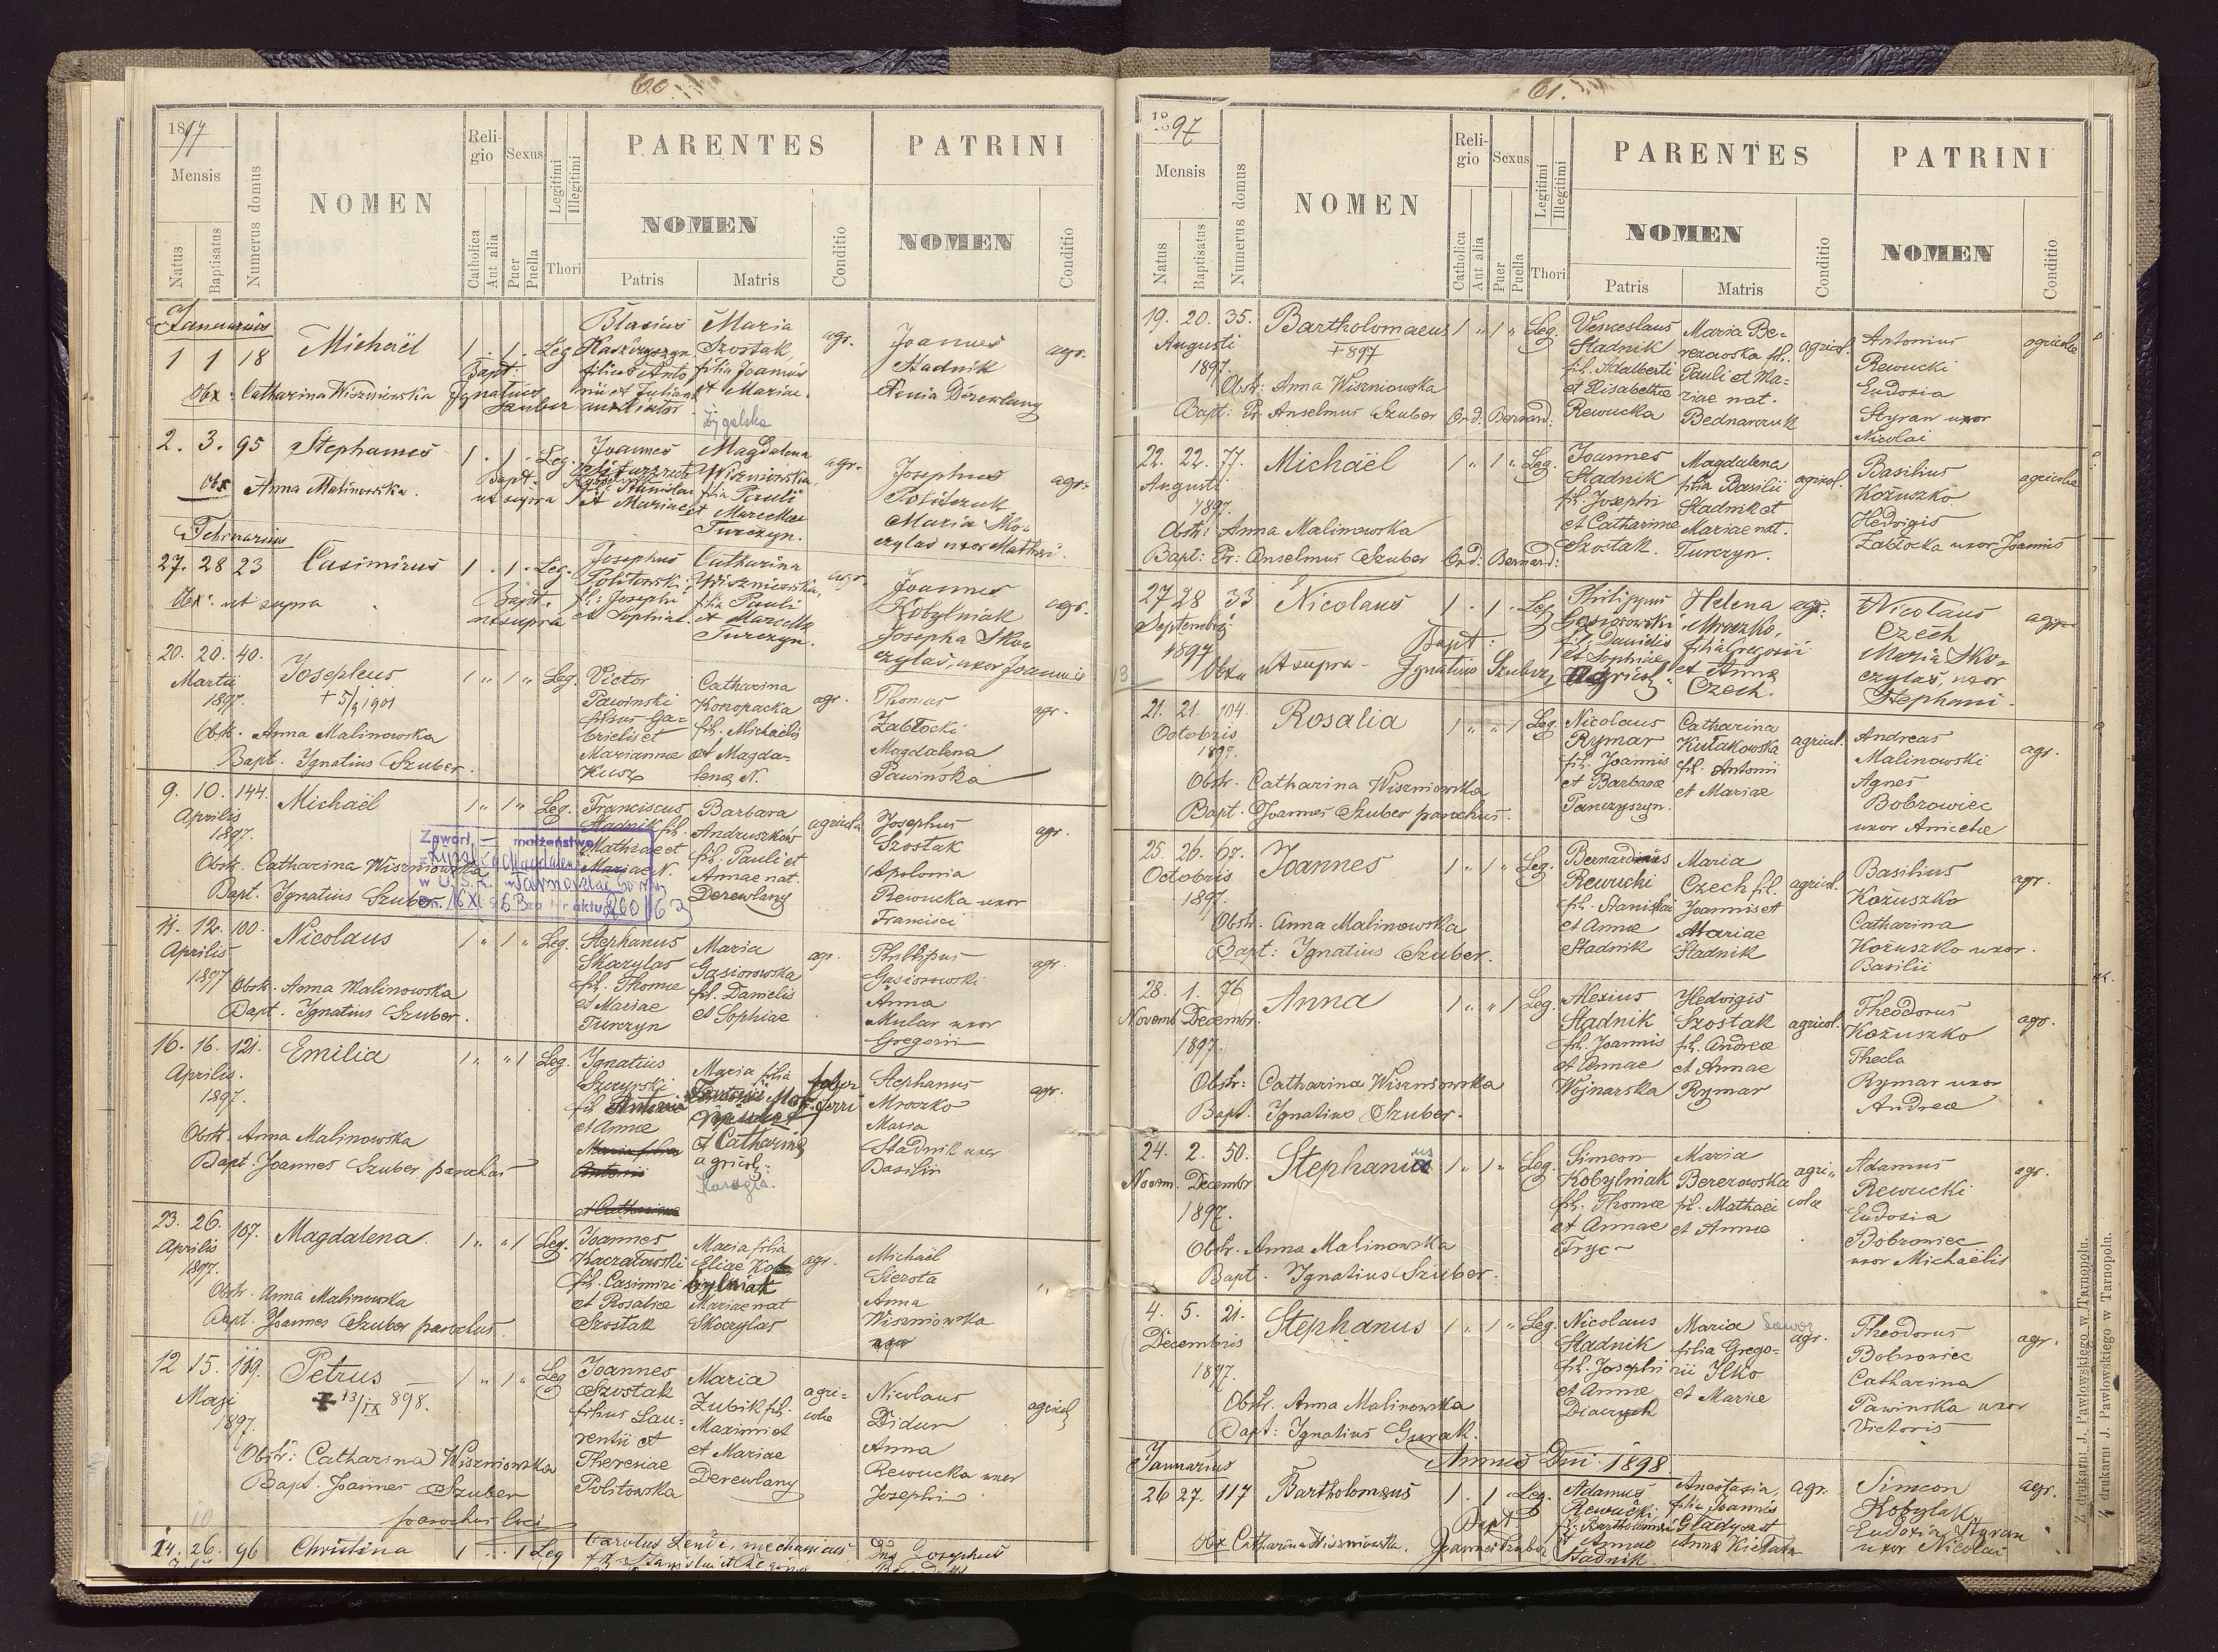 60.
1897
Mensis
Natus
Baptisatus
Numerus domus
NOMEN
Religio
Catholica
Aut alia
Sexus
Puer
Puella
Legitimi
Illegitimi
Thori
PARENTES
NOMEN
Patris
Matris
Conditio
PATRINI
NOMEN
Conditio
Januarius
1 1 18 Michaël 1 . 1 . Leg
Obx: Catharina Wiszniowska
Bapt:
Ignatius
Szuber
Blasius
filius Anto
Maria
Szostak,
filia Joannis
et Mariae.
agr.
Joannes
Stadnik
Derewlany
agr.
2. 3. 95 Stephanus 1 . 1 . Leg.
Obx Anna Malinowska.
Bapt.
ut supra
Joannes
et Mariae
Zygalska
Magdalena
Wiszniowska,
filia Pauli
et Marcellae
Turczyn.
agr.
Josephus
Maria Sko-
czylas uxor Matthaei.
agr.
Februarius
27. 28 23 Casimirus 1 . 1 . Leg.
Obx: ut supra
Bapt.
ut supra
Josephus
Politowski,
fil: Josephi
et Sophiae.
Catharina
Wiszniowska,
filia Pauli
et Marcellae
Turczyn.
agr.
Joannes
Kobylniak
Josepha Sko-
czylas, uxor Joannis
agr.
20. 20. 40. Josephus 1 " 1 " Leg.
Martii
1897.
Obstr. Anna Malinowska
Bapt. Ignatius Szuber.
Victor
Pawinski
filius Ga-
brielis et
Marianne
Kusz
Catharina
Konopacka
fil. Michaelis
et Magda-
lena N.
agr.
Thomas
Zabłocki
Magdalena
Pawinska
agr.
9. 10. 144. Michaël 1 " 1 " Leg.
Aprilis
1897.
Obstr. Catharina Wiszniowska
Bapt. Ignatius Szuber
Zawarł małżeństwo
Franciscus
Stadnik fil.
Mathiae et
Mariae N.
Barbara
Andruszków
fil. Pauli et
Annae nat.
Derewlany
agricola
Josephus
Szostak
Apolonia
Rewucka uxor
Francisci
agr.
11. 12. 100. Nicolaus 1 " 1 " Leg.
Aprilis
1897 Obstr. Anna Malinowska
Bapt. Ignatius Szuber.
Stephanus
Skoczylas
fil. Thomae
et Mariae
Turczyn
Maria
Gasiorowska
fil. Danielis
et Sophiae
agr.
Philippus
Gasiorowski
Anna
Mular uxor
Gregorii
agr.
16. 16. 121. Emilia 1 " " 1 Leg.
Aprilis.
1897.
Obstr. Anna Malinowska
Bapt. Joannes Szuber parochus
Ignatius
et Annae
Maria filia
et Catharina
agricol:
faber
ferri
Stephanus
Mroczko
Maria
Stadnik uxor
Basilii
agr.
23. 26. 107. Magdalena. 1 " " 1 Leg.
Aprilis
1897.
Obstr. Anna Malinowska
Bapt. Joannes Szuber parochus.
Joannes
Kaczałowski
fil. Casimiri
et Rosaliae
Szostak
Maria filia
Eliae Ko-
bylniak
Mariae nat
Skoczylas
agr.
Michaël
Szerota
Anna
Wiszniowska
uxor
12 15. 109. Petrus 1 " 1 " Leg
Maji
1897.
+ 13/IX 898.
Obstr: Catharina Wiszniowska
Bapt. Joannes Szuber
parochus loci
Joannes
Szostak
filius Lau-
rentii et
Theresiae
Politowska
Maria
Zubik fil.
Maximi et
et Mariae
Derewlany
agri-
cola
Nicolaus
Didur
Anna
Rewucka uxor
Josephi
agricol
14. 26. 96 Christina 1 . . 1 Leg
Carolus Lende, mechanicus
Josephus
61.
1897
Mensis
Natus
Baptisatus
Numerus domus
NOMEN
Religio
Catholica
Aut alia
Sexus
Puer
Puella
Legitimi
Illegitimi
Thori
PARENTES
NOMEN
Patris
Matris
Conditio
PATRINI
NOMEN
Conditio
19. 20. 35. Bartholomaeus 1 " 1 " Leg.
Augusti
1897.
+ 897
Obstr: Anna Wiszniowska
Bapt: Pr. Anselmus Szuber Ord: Bernard:
Venceslaus
Stadnik
fil. Adalberti
et Elisabethae
Rewucka
Maria Be-
rezowska fil.
Pauli et Ma-
riae nat.
Bednarczuk
agricol.
Antonius
Rewucki
Eudosia
Styran uxor
Nicolai
agricolae
22. 22. 77. Michaël 1 " 1 " Leg.
Augusti
1897.
Obstr: Anna Malinowska
Bapt: Pr: Anselmus Szuber Ord: Bernard:
Joannes
Stadnik
fil. Josephi
et Catharinae
Szostak.
Magdalena
filia Basilii
Stadnik et
Mariae nat.
Turczyn.
agricol.
Basilius
Kożuszko
Hedvigis
Zabłocka uxor Joannis
agricolae
27 28 33 Nicolaus 1 . 1 . Leg
Septembris
1897
Obstr ut supra
Bapt:
Ignatius Szuber
Philippus
Gąsiorowski
fil. Danielis
et Sophiae
agricol:
Helena
Mroczko,
filia Gregorii
et Anna
Czech.
agr.
Nicolaus
Czech
Maria Sko-
czylas, uxor
Stephani.
agr
21. 21. 104. Rosalia 1 " " 1 Leg.
Octobris
1897.
Obstr. Catharina Wiszniowska
Bapt. Joannes Szuber parochus.
Nicolaus
Rymar
fil. Joannis
et Barbarae
Panczyszyn.
Catharina
Kułakowska
fil. Antonii
et Mariae
agricol.
Andreas
Malinowski
Agnes
Bobrowiec
uxor Anicetae
agr.
25. 26. 67. Joannes 1 " 1 " Leg.
Octobris
1897.
Obstr. Anna Malinowska
Bapt: Ignatius Szuber.
Bernardinus
Rewucki
fil. Stanislai
et Annae
Stadnik
Maria
Czech fil.
Joannis et
Mariae
Stadnik
agricol.
Basilius
Kożuszko
Catharina
Kożuszko uxor.
Basilii
agr.
28. 1. 76 Anna 1 " " 1 Leg.
Novemb Decembr.
1897.
Obstr: Catharina Wiszniowska
Bapt. Ignatius Szuber.
Alexius
Stadnik
fil. Joannis
et Annae
Wojnarska
Hedvigis
Szostak
fil. Andreae
et Annae
Rymar
agricol.
Theodorus
Kożuszko
Thecla
Rymar uxor
Andreae
agr.
24. 2. 50. Stephanus 1 " 1 " Leg.
Novem. Decembr
1897.
Obstr. Anna Malinowska
Bapt. Ignatius Szuber.
Simeon
Kobylniak
fil. Thomae
et Annae
Fryc
Maria
Berezowska
fil. Mathaei
et Annae
agri-
colae
Adamus
Rewucki
Eudosia
Bobrowiec
uxor Michaëlis
agr.
4. 5. 21. Stephanus 1 " 1 " Leg.
Decembris
1897.
Obstr. Anna Malinowska
Bapt: Ignatius Gurak.
Nicolaus
Stadnik
fil. Josephi
et Annae
Diaczyck
Maria
filia Grego-
rii Ilko
et Mariae
agr.
Theodorus
Bobrowiec
Catharina
Pawinska uxor
Victoris
agr.
Januarius
Annus Dni 1898
26 27. 117 Bartholomaeus 1 . 1 . Leg.
Obx Catharina Wiszniowska.
Bapt
Joannes Szuber
Adamus
Rewucki,
et Annae
Stadnik.
Anastasia,
filia Joannis
Gładysz et
agr.
Simeon
Kobylak
Eudoxia Styran
uxor Nicolai
agr.
Z drukarni J. Pawłowskiego w Tarnopolu.
Z drukarni J. Pawłowskiego w Tarnopolu.